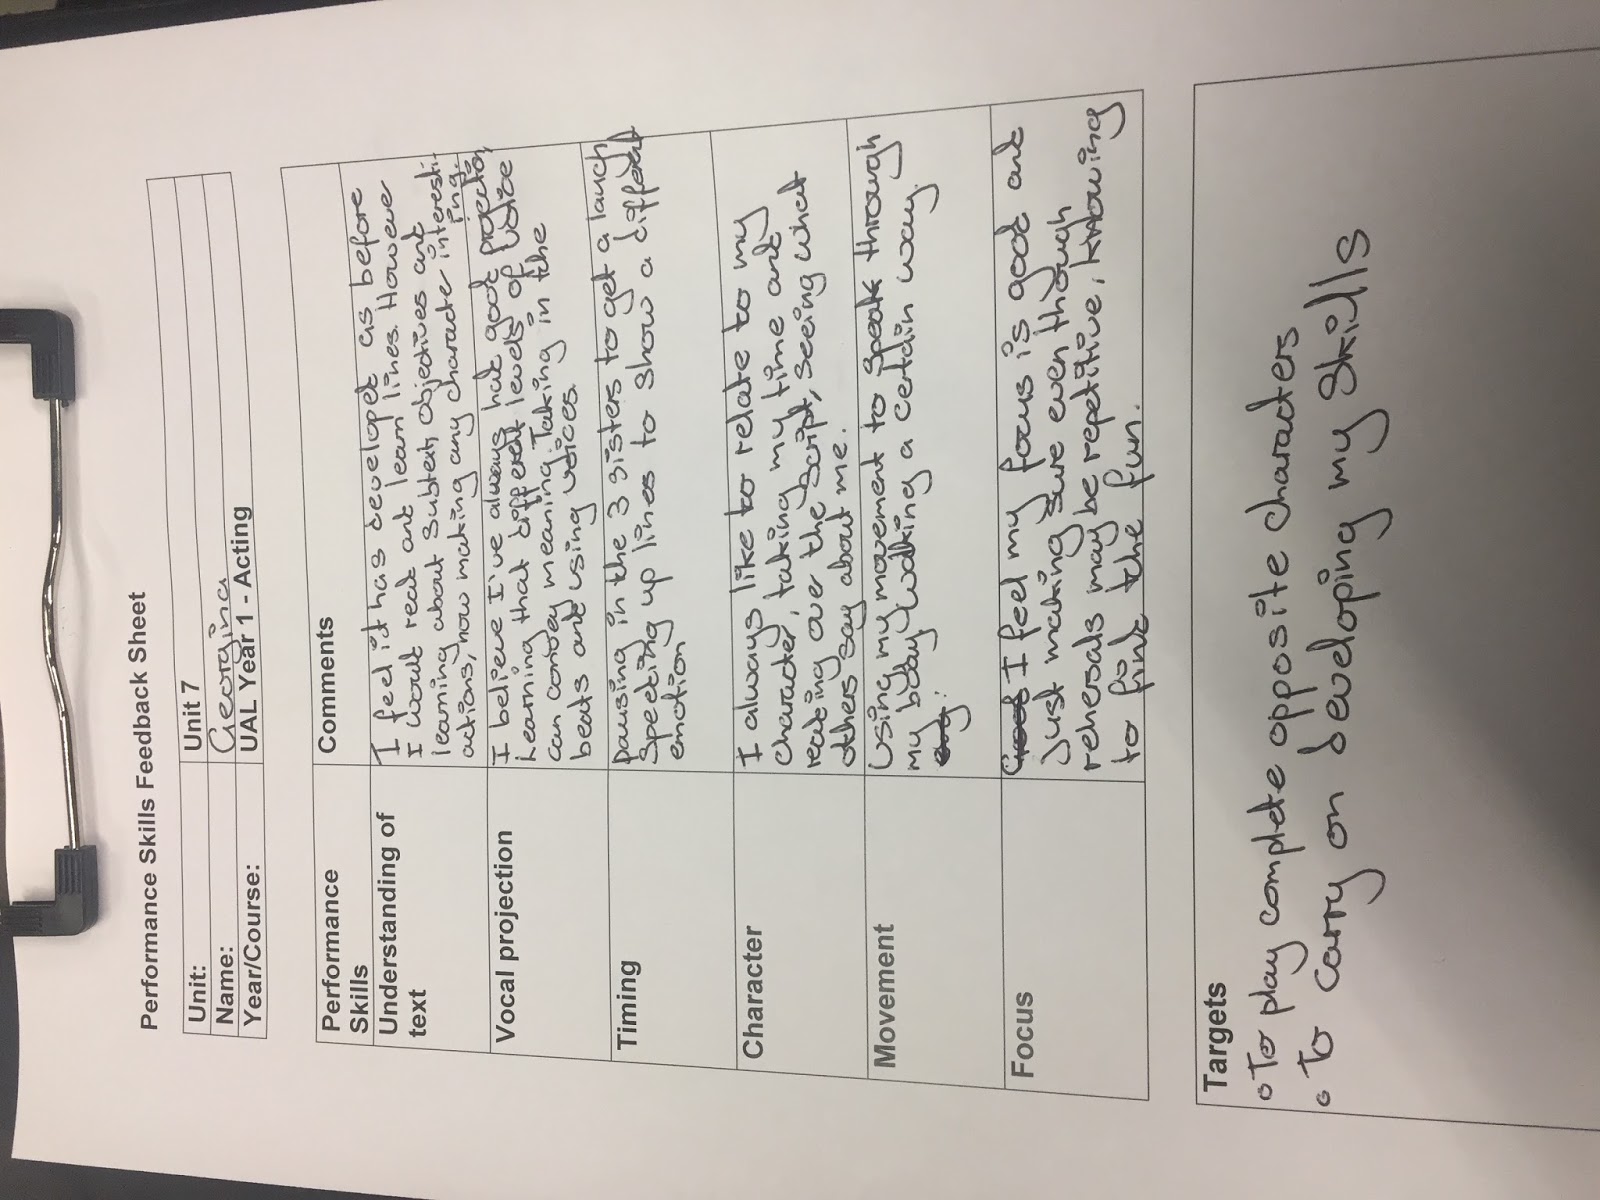 Performance Skills Feedback Sheet
Unit: Unit 7
Name: Georgina
Year/Course: UAL Year 1 - Acting
Performance Skills Comments
Understanding of text
I feel it has developed as before
I would read and learn lines. However
learning about subtext, objectives and
actions, now making any character interesti-
ing.
Vocal projection
I believe I've always had good projection,
Learning that different levels of voice
can convey meaning. Taking in the
beats and using voices.
Timing
Pausing in the 3 sisters to get a laugh
Speeding up lines to show a different
emotion
Character
I always like to relate to my
character, taking my time and
reading over the script, seeing what
others say about me.
Movement
Using my movement to speak through
my body, walking a certain way.
Focus
I feel my focus is good and
Just making sure even though
rehersals may be repetitive, knowing
to find the fun.
Targets
o To play complete opposite charaters
o To carry on developing my skills